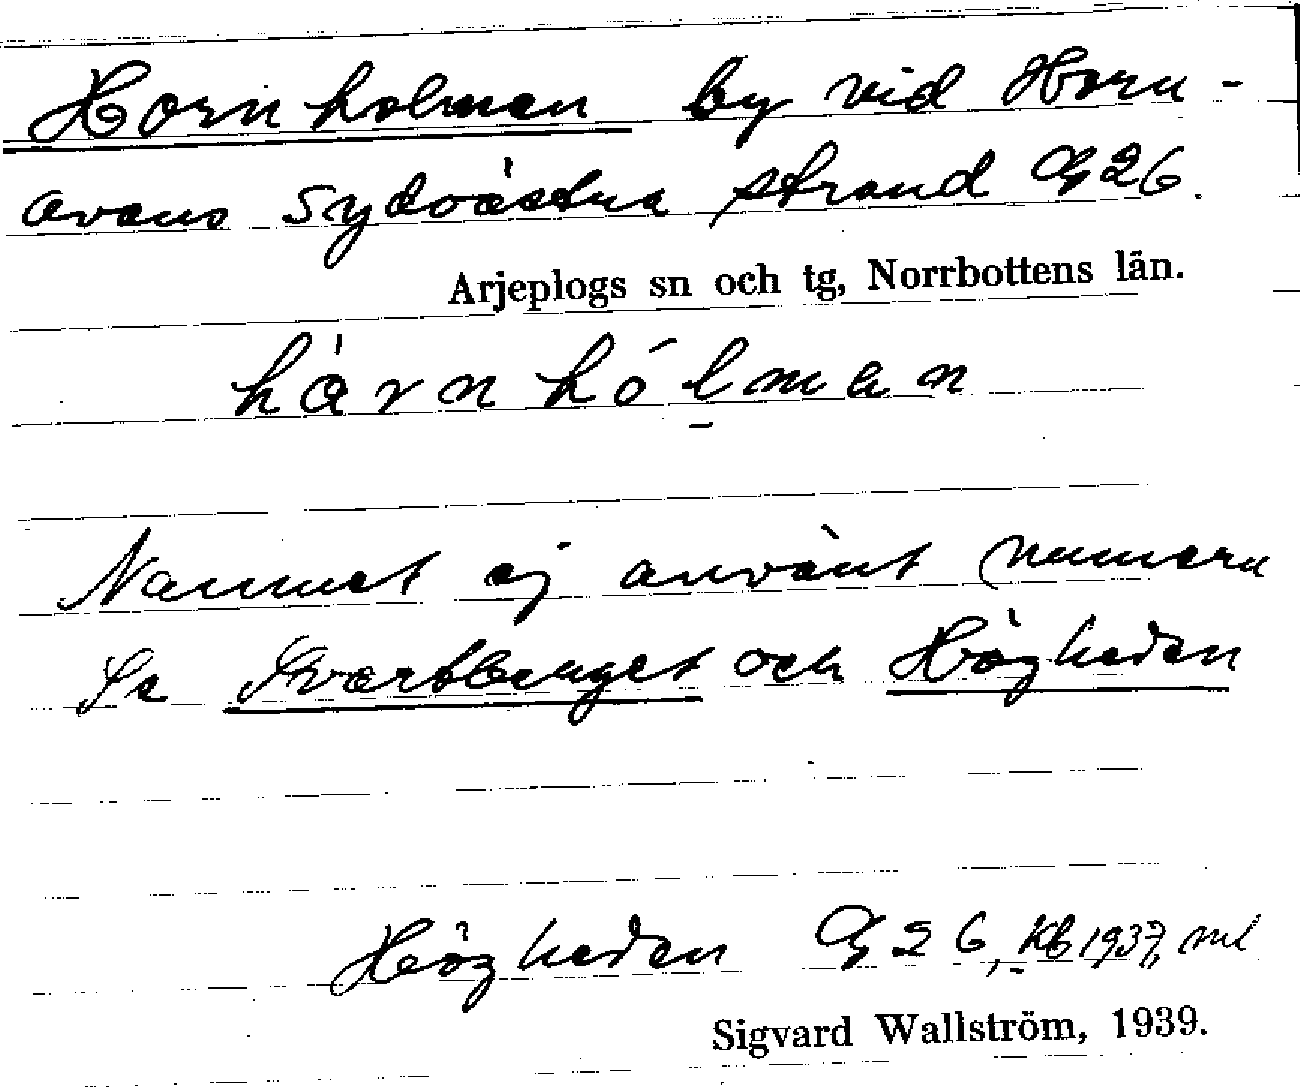 Hornholmen by vid Horn-
avans sydvästra strand G 26.
Arjeplogs sn och tg, Norrbottens län.
hårnhólman
Namnet ej använt numera
Se Svartberget och Högheden
Högheden G 26, Kb 1937, ml
Sigvard Wallström, 1939.